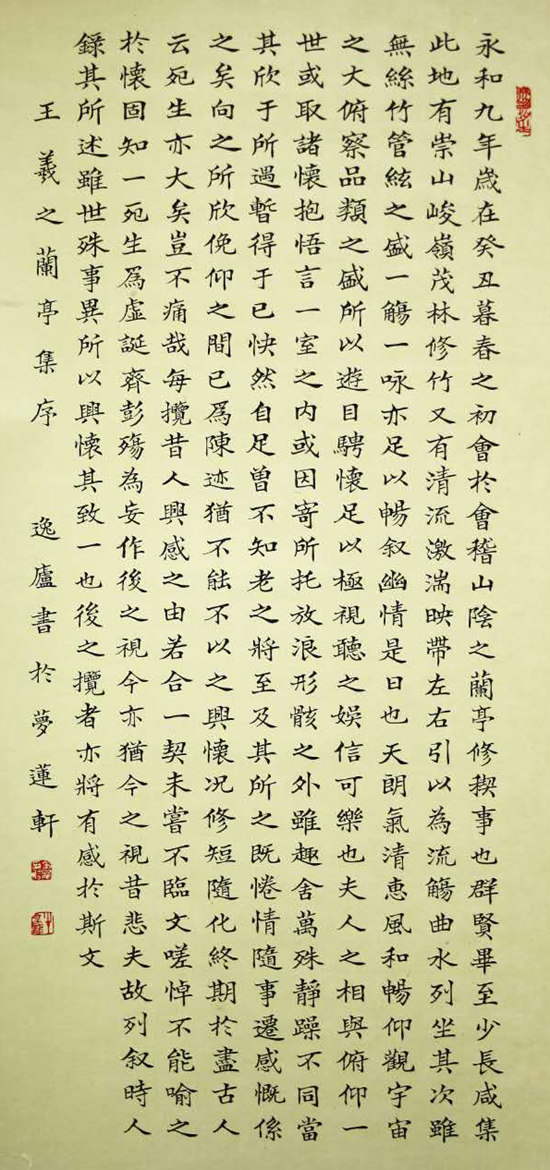 永和九年歲在癸丑暮春之初會於會稽山陰之蘭亭修稧事也群賢畢至少長咸集
此地有崇山峻嶺茂林修竹又有清流激湍映帶左右引以為流觴曲水列坐其次雖
無絲竹管絃之盛一觴一咏亦足以暢叙幽情是日也天朗氣清惠風和暢仰觀宇宙
之大俯察品類之盛所以遊目騁懷足以極視聽之娛信可樂也夫人之相與俯仰一
世或取諸懷抱悟言一室之内或因寄所托放浪形骸之外雖趣舍萬殊靜躁不同當
其欣于所遇暫得于己快然自足曾不知老之將至及其所之既惓情隨事遷感慨係
之矣向之所欣俛仰之間已爲陳迹猶不能不以之興懷况修短隨化終期於盡古人
云死生亦大矣豈不痛哉每攬昔人興感之由若合一契未嘗不臨文嗟悼不能喻之
於懷固知一死生爲虛誕齊彭殤為妄作後之視今亦猶今之視昔悲夫故列叙時人
錄其所述雖世殊事異所以興懷其致一也後之攬者亦將有感於斯文
王羲之蘭亭集序 逸廬書於夢蓮軒